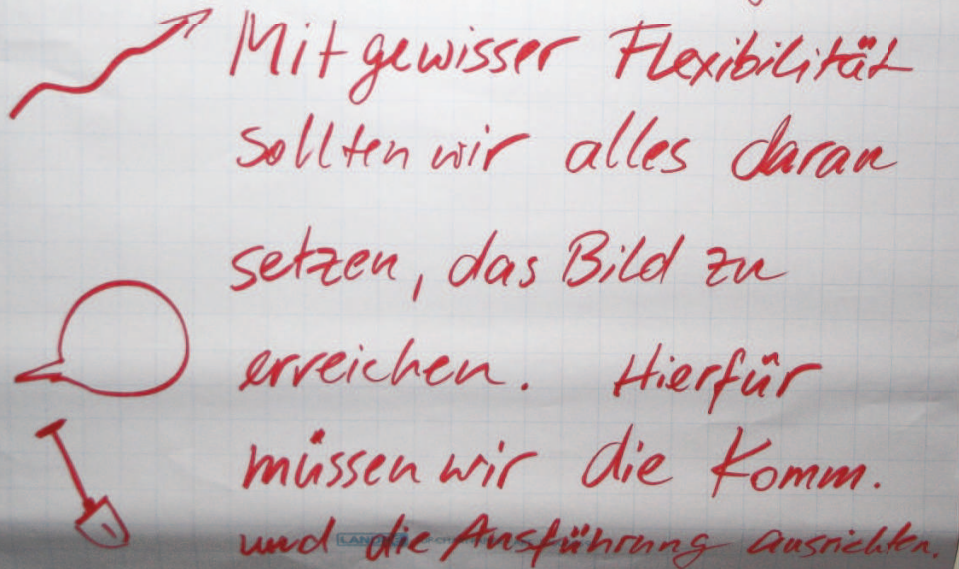 Mit gewisser Flexibilität
sollten wir alles daran
setzen, das Bild zu
erreichen. Hierfür
müssen wir die Komm.
und die Ausführung ausrichten.